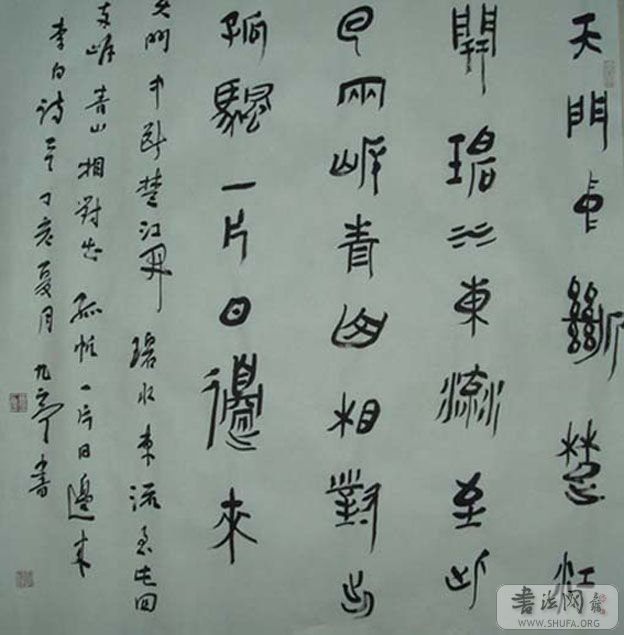 天門中斷楚江
開碧水東流至此
回兩岸青山相對出
孤帆一片日邊來
天門中斷楚江開碧水東流至此回
兩岸青山相對出孤帆一片日邊來
李白詩丁亥夏月九亭書
書法网
WWW.SHUFA.ORG